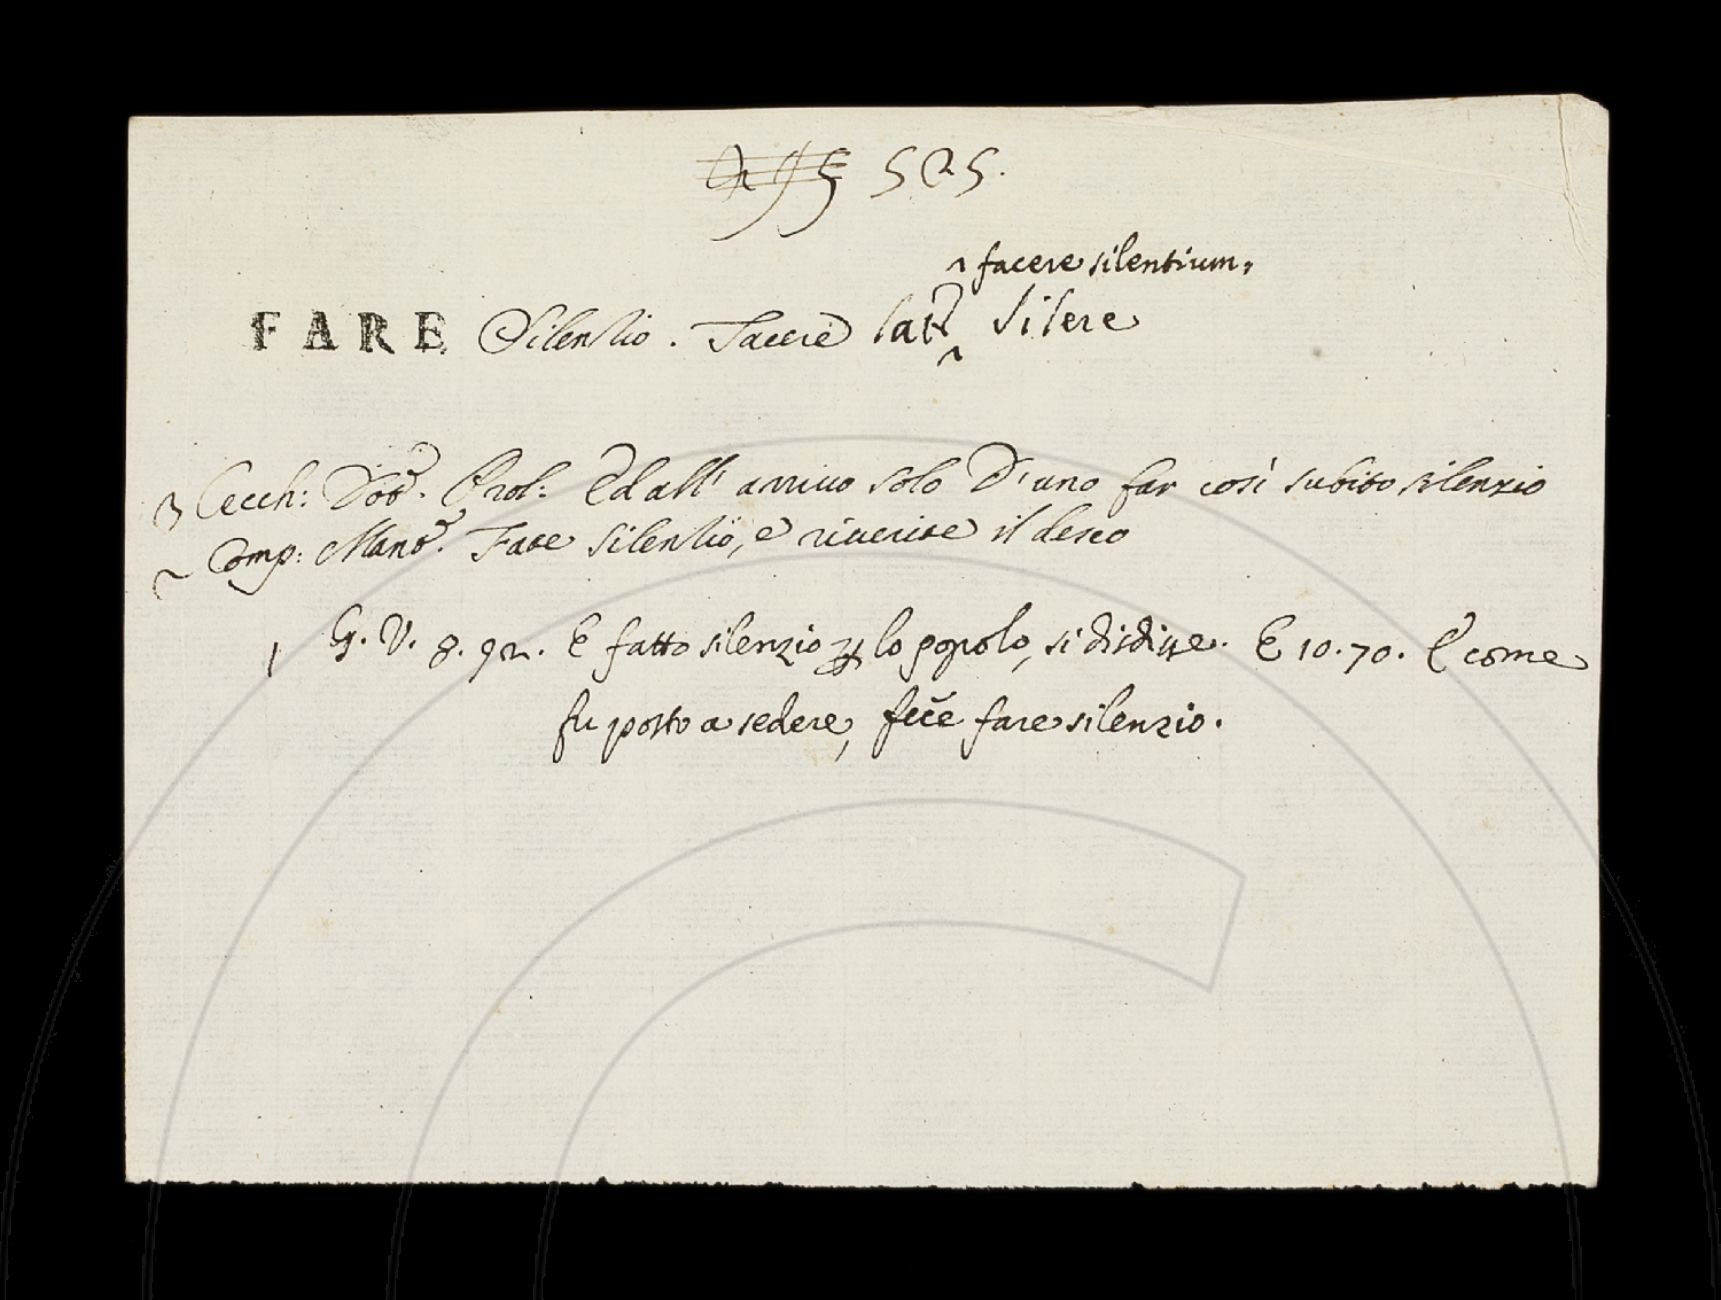 525.
^ facere silentium,
FARE Silenzio. Tacere lat. ^ Silere
3 Cecch: Dot. Prol: Ed all' arrivo solo D'uno far così subito silenzio
2 Comp: Mant. Fate silenzio, e riverite il desco
1 G. V. 8. 92. E fatto silenzio lo popolo, si disdisse. E 10. 70. E come
fu posto a sedere, fece fare silenzio.